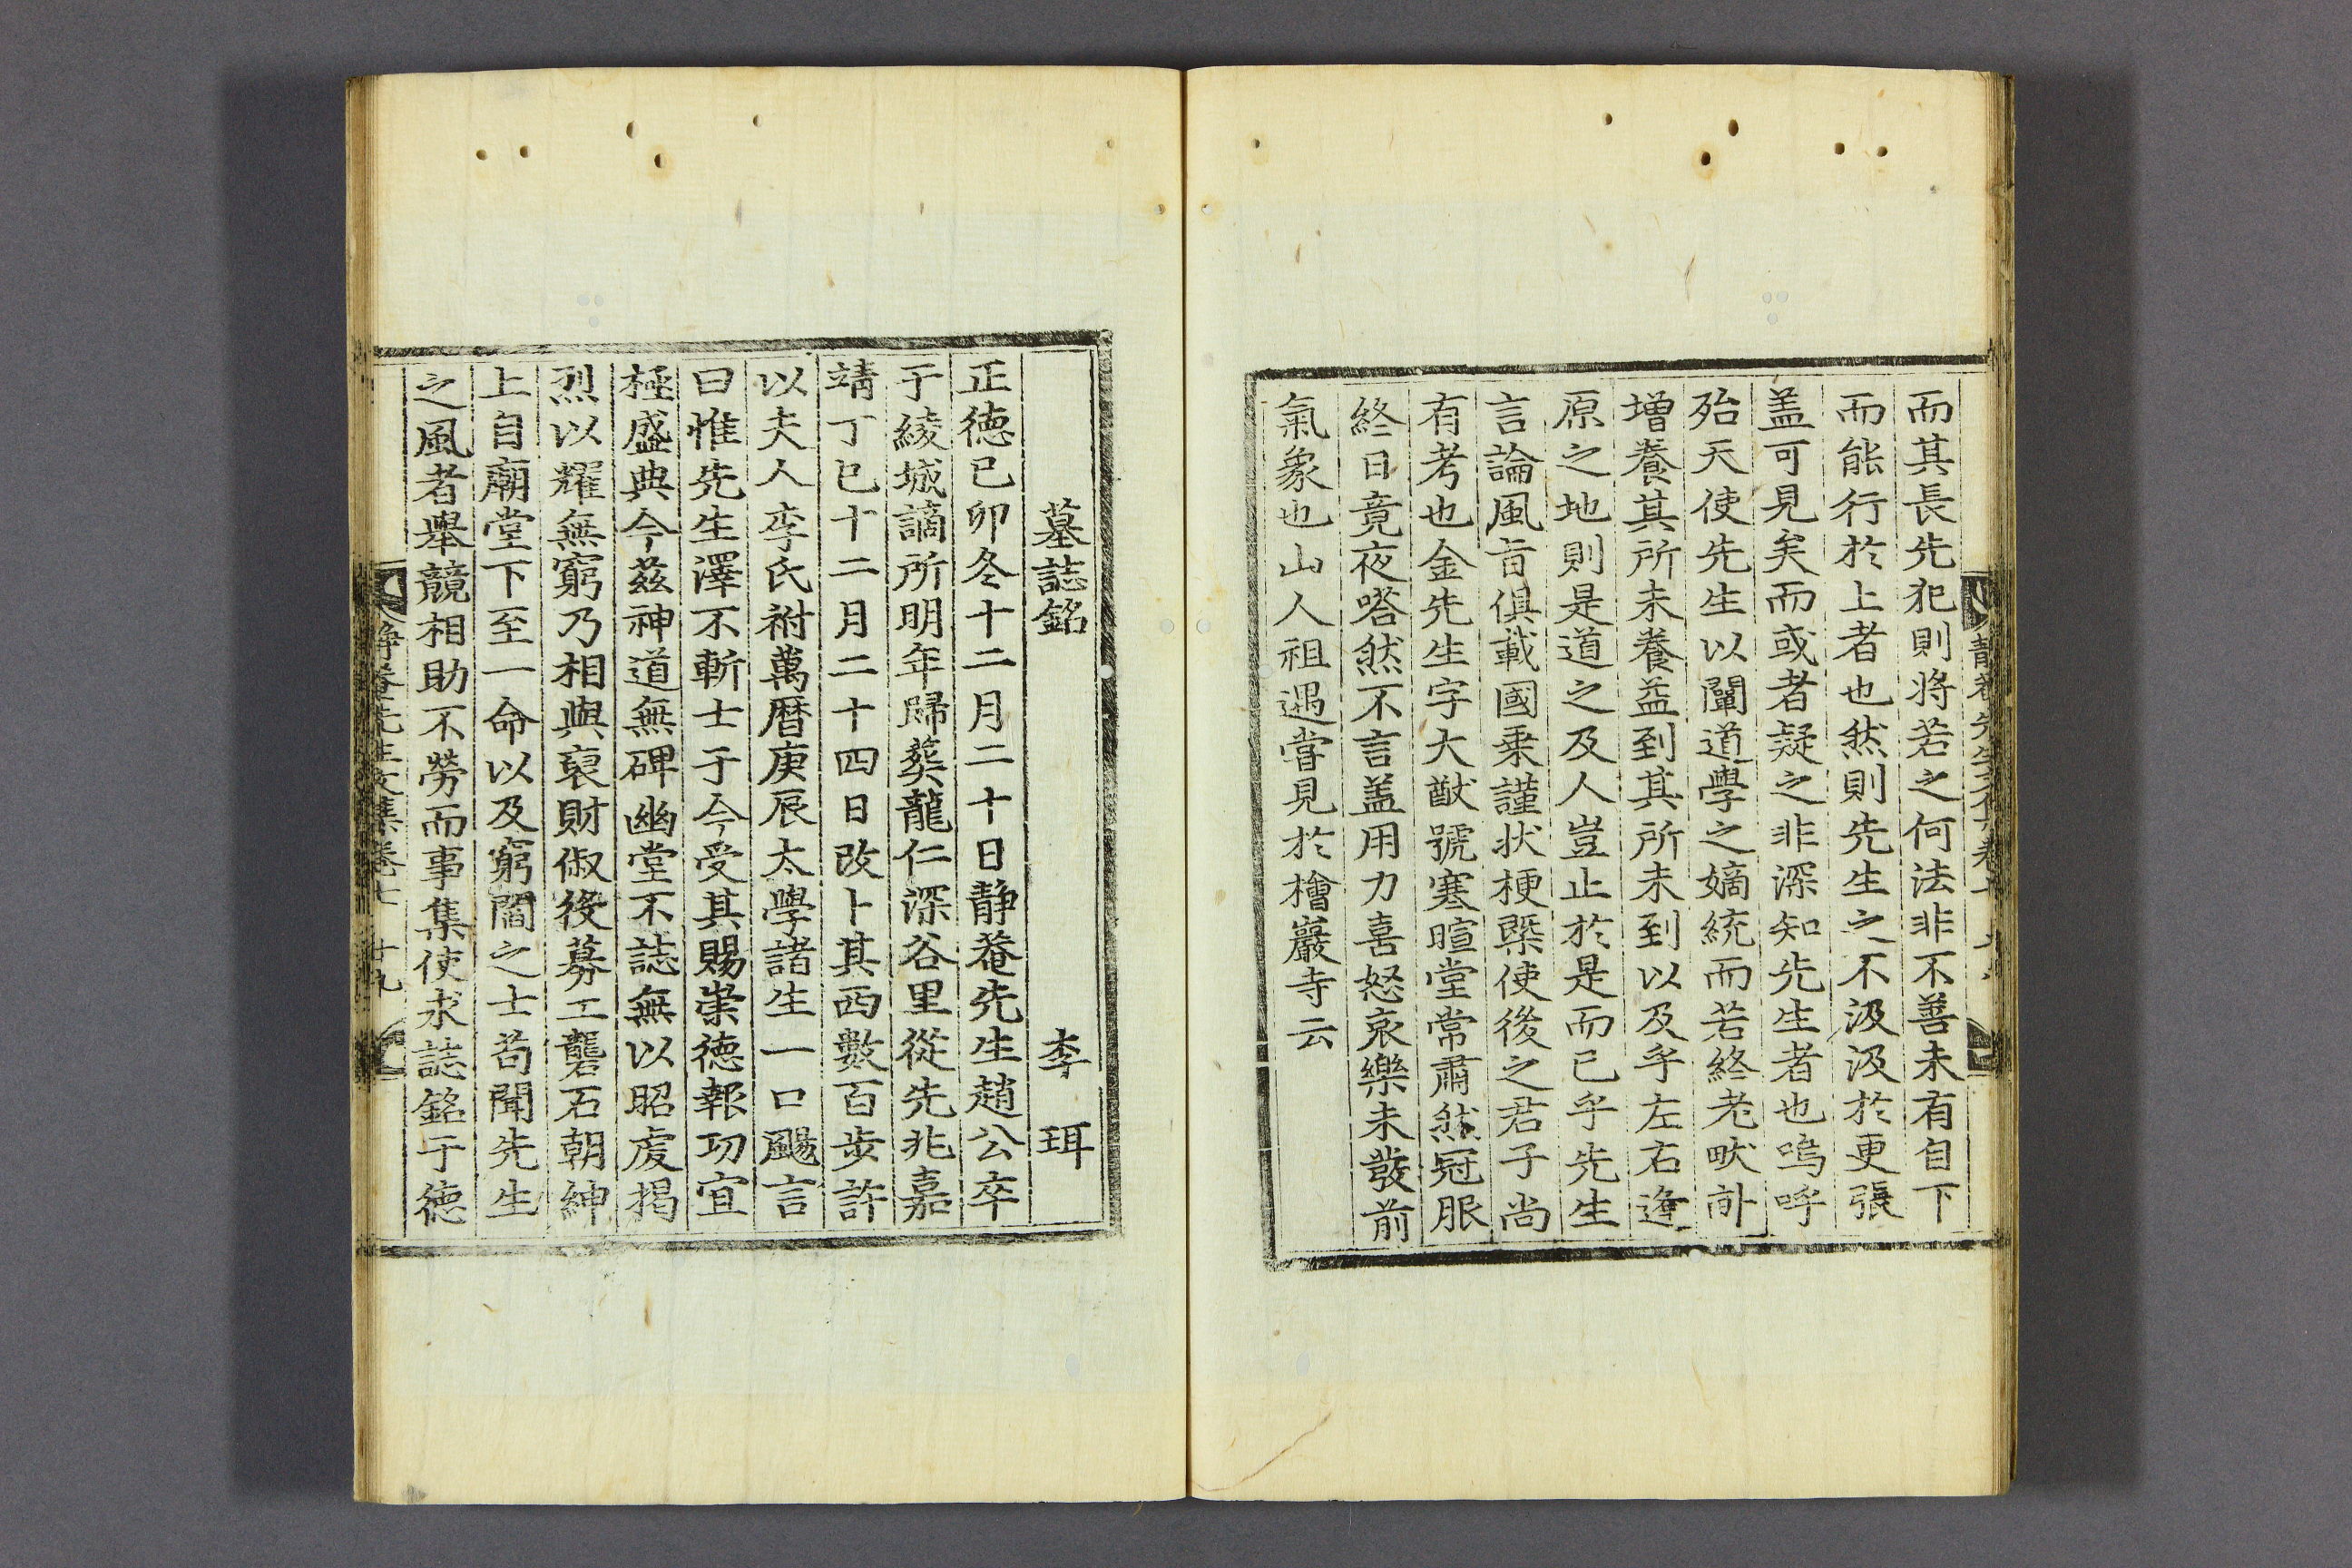 而其長先犯則將若之何法非不善未有自下
而能行於上者也然則先生之不汲汲於更張
盖可見矣而或者疑之非深知先生者也嗚呼
殆天使先生以闡道學之嫡統而若終老畎
增養其所未養益到其所未到以及乎左右逢
原之地則是道之及人豈止於是而已乎先生
言論風旨俱載國乗謹状梗槩使後之君子尚
有考也金先生字大猷號寒暄堂常肅然冠服
終日竟夜嗒然不言盖用力喜怒哀樂未發前
氣象也山人祖遇嘗見於檜巖寺云
墓誌銘 李 珥
正德已卯冬十二月二十日靜菴先生趙公卒
于綾城謫所明年歸葬龍仁深谷里從先兆嘉
靖丁巳十二月二十四日改卜其西數百步許
以夫人李氏祔萬曆庚辰太學諸生一口颺言
曰惟先生澤不斬士于今受其賜崇德報功宜
極盛典今兹神道無碑幽堂不誌無以昭虔揭
烈以耀無窮乃相與裒財俶後募工礱石朝紳
上自廟堂下至一命以及窮閻之士苟聞先生
之風者舉競相助不勞而事集使求誌銘于德
靜菴先生文集卷七 十九